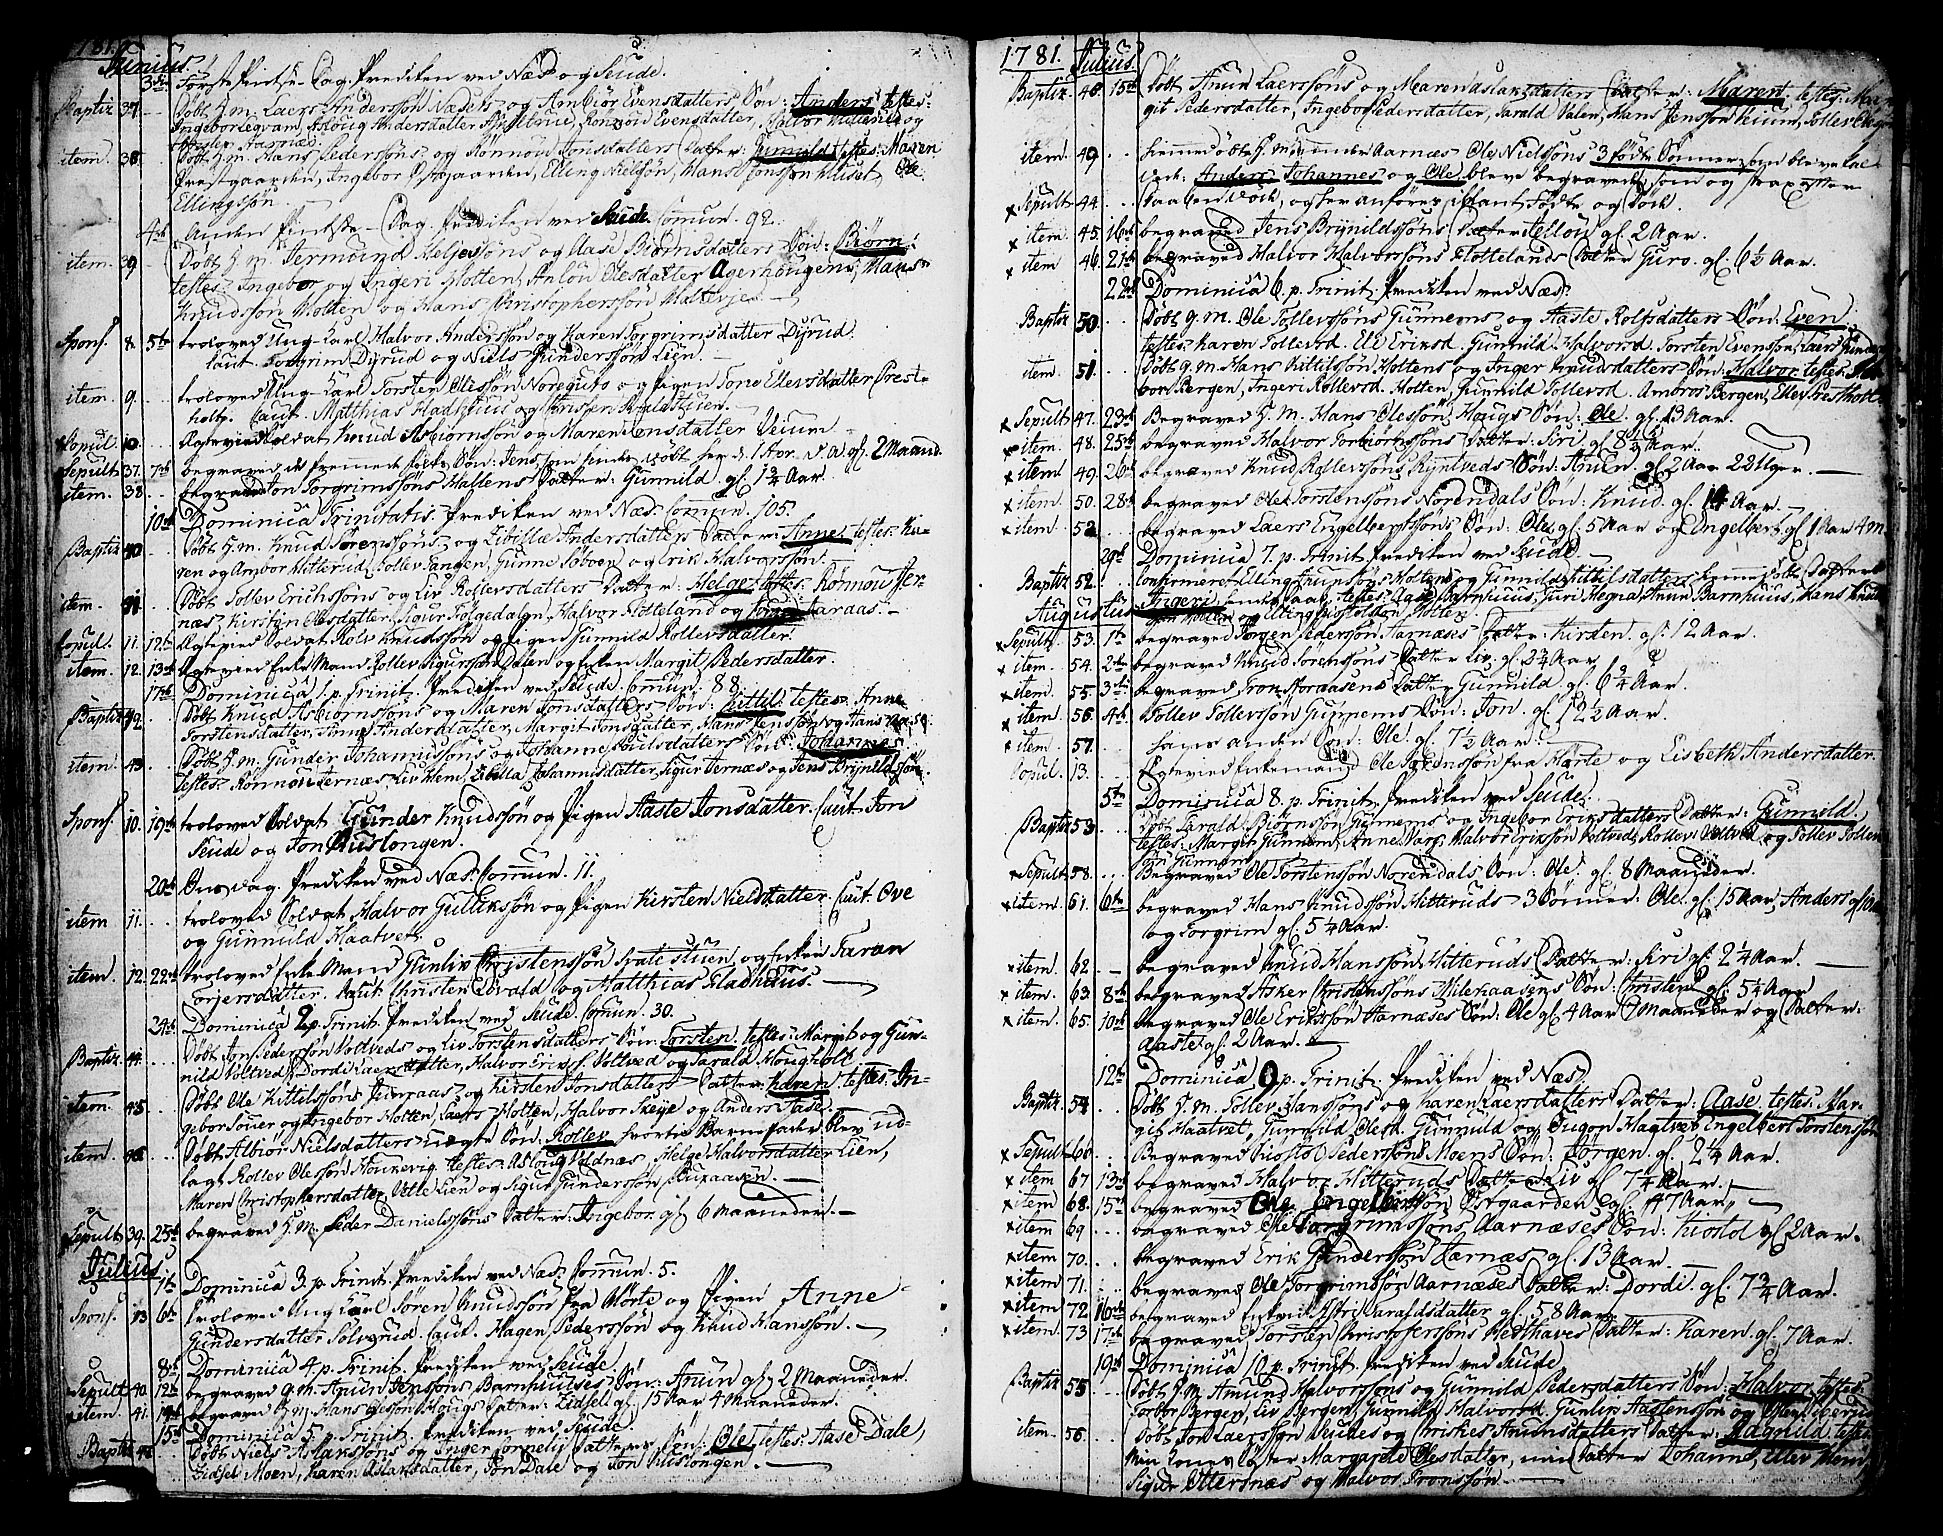 1781. Junius.
3die Første Pintse-Dag. Prediken ved Næs og Seude.
Baptiz 37. Døbt H. M. Laers Anderssøn Næsets og Anbiør Evensdatters Søn: Anders. testes:
Ingebor Legvam, Asloug Andersdatter, Ronnou Evensdatter, Halvor og
item. 38. Døbt H. m. Hans Pederssøns og Rønnou Jonsdatters Datter: Gunnild testes: Maren
Præstgaarden, Ingebor Østgaarden, Elling Nielsøn, Hans Jonssøn Huset, Ole
Ellingssøn.
4de Anden Pintse-Dag. Prediken ved Seude. Comun. 92.
item. 39. Døbt H. m. Jermund Heljessøns og Aase Biørnsdatters Søn: Biørn.
testes. Ingebor og Ingeri Holten, Anlou Olesdatter Agerhougen, Hans
Knudssøn Holten og Hans Christopherssøn
Spons. 8. 5te troloved Ung-Karl Halvor Anderssøn og Karen Torgrimsdatter Dyrud.
Caut. Torgrim Dyrud og Niels Gunderssøn Lien.
item. 9. troloved Ung-Karl Torsten Olessøn Noreguto og Pigen Tone Ellevsdatter Prest-
holt. Caut. Matthias Fladhuus og
Copul. 10. Ægteviet Soldat Knud Asbiørnssøn og Maren Jonsdatter Veium.
Sepult 37. 7de begraved Søn: Jens, gl. 2 Maaned.
item. 38. begraved Jon Torgrimssøns Hallens Datter: Gunnild. gl. 1¾ Aar.
10de Dominica Trinitatis. Prediken ved Næs. Comun. 105.
Baptiz 40. Døbt H. m. Knud Sørenssøns og Zibille Andersdatters Datter: Anne. testes: Ka-
ren og Ambor Hitterud, Tollev Tangen, Gunne Søboen og Erik Halvorssøn.
item. 41. Døbt Tollev Erichssøns og Liv Rollevsdatters Datter: Helge. testes. Rønnou Jer-
næs, Kirsten Olesdatter, Sigur Folgedalen, Halvor Flotteland og
Copul. 11. 12te Ægteviet Soldat Rolv Knudssøn og Pigen Gunnild Rollevsdatter.
item. 12. 13de Ægteviet Enke Mand Rollev Sigurssøn Dalen og Enken Margit Pedersdatter.
17de Dominica 1. p. Trinit. Prediken ved Seude. Comun. 88.
Baptiz 42. Døbt Knud Asbiørnssøns og Maren Jonsdatters Søn: Kittil. testes. Anne
Torstensdatter, Anne Andersdatter, Margit Jonsdatter, Hans Jenssøn og Hans
item. 43. Døbt H. m. Gunder Johannissøns og Johanne Povelsdatters Søn: Johannes.
testes. Rønnou Jernæs, Liv Hem, Zibilla Johannisdatter, Sigur Jernæs og Jens Brynildssøn.
Spons. 10. 19de troloved Soldat Gunder Knudssøn og Pigen Aaste Jonsdatter. Caut. Jon
Seude og Jon Huslongen.
20de Onsdag. Prediken ved Næs. Comun. 11.
item 11. troloved Soldat Halvor Gulliksøn og Pigen Kirsten Nielsdatter. Caut. Ove
og Gunnuld Haatvet.
item. 12. 22de troloved Enke Mand Gunliv Christenssøn Svalestuen og Enken Taran
Torjersdatter. Caut. Christen og Matthias Fladhuus.
24de Dominica 2 p. Trinit. Prediken ved Seude. Comun. 30.
Baptiz 44. Døbt Jon Pederssøn Voltveds og Liv Torstensdatters Søn: Torsten. testes: Margit og Gun-
nild Voltved, Dordi Laersdatter, Halvor Erikss. Voltved og Tarald Hougholt.
item. 45. Døbt Ole Kittilssøns og Kirsten Jonsdatters Datter: Karen. testes. In-
gebor Souer og Ingebor Holten, Laers Holten, Halvor Skeye og Anders Aase.
item 46. Døbt Albiør Nielsdatters uægte Søn: Rollev hvortil Barnefader blev ud-
lagt Rollev Olessøn Houkevig. testes: Asloug Voldnæs, Helge Halvorsdatter Lien,
Maren Christophersdatter, Velle Lien og Sigur Gunderssøn Buxaasen.
Sepult 39. 25de begraved H. m. Peder Danielssøns Datter: Ingebor. gl. 6 Maaneder.
Julius.
1te Dominica 3. p. Trinit. Prediken ved Næs. Comun. 5.
Spons. 13 6te troloved Ung Karl Søren Knudssøn fra Hørte og Pigen Anne
Gundersdatter Solverud. Caut. Hagen Pederssøn og Knud Hanssøn.
8de Dominica 4 p. Trinit. Prediken ved Seude.
Sepult 40. 12te begraved H. m. Anun Jenssøns Barnhuuses Søn: Anun gl. 2 Maaneder.
item. 41. begraved H. m. Hans Olessøn Hougs Datter: Zidsel gl. 15 Aar 4 Maaneder.
15de Dominica 5. p. Trinit. Prediken ved Seude.
Baptiz 47. Døbt Niels Aslakssøns og Inger Cornelii Datters Søn: Ole. testes. Aase Dale,
Zidsel Moen, Karen Aslaksdatter, Jon Dale og Jon Huslongen.
1781. Julius.
Baptiz 48. 15de Døbt Anun Laerssøns og Maren Aslaksdatters Datter: Maren. testes. Mar-
git Pedersdatter, Ingebor Pedersdatter, Tarald Valen, Hans Jenssøn Kium, Tollev
item 49. hiemmedøbt H. m. Aarnæs Ole Nielssøns 3 fødte Sønner, som bleve kal-
det: Anders, Johannes og Ole. bleve begravede, som og strax efter
Sepult 44. Daaben døde, og her anføres iblant Fødte og Døde.
item. 45. 16de begraved Jens Brynildssøns Datter Tellou gl. 2 Aar.
item 46. 21de begraved Halvor Halvorssøns Flottelands Datter Guro. gl. 6½ Aar.
22de Dominica 6. p. Trinit. Prediken ved Næs.
Baptiz 50. Døbt H. m. Ole Tollevssøns Gunnems og Aaste Rolfsdatters Søn: Even.
testes. Karen Tollevsd. Eli Eriksd. Gunnild Halvorsd. Torsten Evenssøn, Laers
item 51. Døbt H. m. Hans Kittilssøn Holtens og Inger Knudsdatters Søn: Halvor. testes.
Bergen, Ingeri Rollevsd. Holten, Gunnild Tollevsd. Ambros Bergen, Ellev Prestholt
Sepult 47. 23de Begraved H. M. Hans Olessøn Hougs Søn: Ole. gl. 13 Aar.
item. 48. 25de begraved Halvor Torbiørnssøns Datter: Siri gl. 8½ Aar.
item 49. 26de begraved Knud Rollevssøns Søn: Anun. gl. 2 Aar 22 Uger.
item 50. 28de begraved Ole Torstenssøns Norendals Søn: Knud. gl. 14 Aar.
item 52. begraved Laers Engelbregtssøns Søn: Ole gl. 5 Aar og Engelbert gl. 1 Aar 4 m
29de Dominica 7. p. Trinit. Prediken ved Seude.
Baptiz 52. Confirmeret Elling Knudssøns Holtens og Gunnild Kittilsdatters hiemmedøbte Datter
Ingeri. testes. Aase Barnhuus, Guri Aegna, Anun Barnhuus, Hans
Augustus
Sepult 53. 1te begraved Jørgen Pederssøn Aarnæses Datter: Kirsten. gl. 12 Aar.
item. 54. 2den begraved Knud Sørenssøns Datter Liv. gl. 2¾ Aar
item. 55. 3die begraved Tron Datter Gunnild gl. 6¾ Aar.
item 56. 4de Tollev Tollevssøn Gunnems Søn: Jon gl. 12½ Aar.
item 57. hans anden Søn: Ole. gl. 7½ Aar.
Copul. 13. Ægteviet Enkemand Ole fra Hørte og Lisbeth Andersdatter.
5te Dominica 8. p. Trinit. Prediken ved Seude.
Baptiz 53. Døbt Tarald Biørnssøn Gunnems og Ingebor Eriksdatters Datter: Gunnild.
testes. Margit Gunnem, Anne Varg, Halvor Erikssøn Voltved, Rollev Voltved og Tollev
Sepult 58. Begraved Ole Torstenssøn Norendals Søn: Ole. gl. 8 Maaneder.
item. 61. 6te begraved Hans Knudssøn Hitteruds 3 Sønner: Ole. gl. 15 Aar, Anders gl.
og Torgrim gl. 5¼ Aar.
item. 62. begraved Knud Hanssøn Hitteruds Datter: Siri gl. 2¼ Aar.
item. 63. 8de begraved Asker Christenssøns Mileraasens Søn: Christen gl. 5¼ Aar
item. 65. 10de begraved Ole Erikssøn Aarnæses Søn: Ole gl. 4 Aar 7 Maaneder og Datter:
Aaste gl. 2 Aar.
12te Dominica 9 p. Trinit. Prediken ved Næs.
Baptiz 54 Døbt H. m. Tollev Hanssøns og Karen Laersdatters Datter: Aase. testes. Mar-
git Haatvet, Gunnild Olesd. Gunnuld og Eugon Haatvet Engelbert Torstenssøn
Sepult 66. Begraved Pederssøns Moens Søn: Jørgen. gl. 2¼ Aar.
item 67 13de begraved Halvor Hitteruds Datter Liv gl. 7¼ Aar.
item 68. 15de begraved Ole Engelbertssøn Østgaarden gl. 47 Aar.
item 69. begraved Ole Torgrimssøns Aarnæses Søn: Kittil gl. 2 Aar.
item 70. begraved Erik Gunderssøn Aarnæs gl. 13 Aar.
item 71. begraved Ole Torgrimssøn Aarnæses Datter: Dordi. gl. 7¾ Aar.
item 72 16de begraved Enken Astri Taraldsdatter gl. 58 Aar.
item 73 17de begraved Torsten Christofferssøns Datter: Karen gl. 7 Aar.
19de Dominica 10 p. Trinit. Prediken ved Seude
Baptiz 55 Døbt H. M. Amund Halvorssøns og Gunnild Pedersdatters Søn: Halvor. testes.
Torbor Bergen, Liv Bergen, Gunnild Halvorsd. Gunliv Aastenssøn og
item. 56. Døbt Jon Laerssøn Seudes og Anunsdatters Datter: Ragnild. testes
Min Kone, Søster Margarete Olesdatter, min Datter Johanne, Ellev Hem,
Sigur Ottersnæs og Halvor Tronssøn.